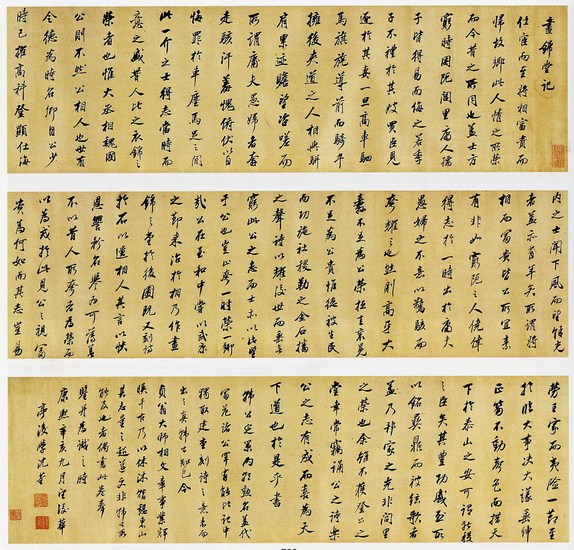 晝錦堂記
仕宦而至將相富貴而
歸故鄉此人情之所榮
而今昔之所同也蓋士方
窮時困阨閭里庸人孺
子皆得易而侮之若季
子不禮於其嫂買臣見
逐於其妻一旦高車駟
馬旗旄導前而騎卒
擁後夾道之人相與駢
肩累迹瞻望咨嗟而
所謂庸夫愚婦者奔
走駭汗羞愧俯伏以自
悔罪於車塵馬足之間
此一介之士得志當時而
意氣之盛昔人比之衣錦之
榮者也惟大丞相魏國
公則不然公相人也世有
令德為時名卿自公少
時已擢高科登顯仕海
內之士聞下風而望餘光
者蓋亦有年矣所謂將
相而富貴皆公所宜素
有非如窮阨之人僥倖
得志於一時出於庸夫
愚婦之不意以驚駭而
夸耀之也然則高牙大
纛不足為公榮桓圭袞冕
不足為公貴惟德被生民
而功施社稷勒之金石播
之聲詩以耀後世而垂無
窮此公之志而士亦以此望
於公也豈止夸一時榮一鄉
哉公在至和中嘗以武康
之節來治於相乃作晝
錦之堂於後圃既又刻詩
於石以遺相人其言以快
恩讐矜名譽為可薄蓋
不以昔人所夸者為榮而
以為戒於此見公之視富
貴為何如而其志豈易
勞王家而夷險一節至
於臨大事決大議垂紳
正笏不動聲色而措天
下於泰山之安可謂社稷
之臣矣其豐功盛烈所
以銘彝鼎而被弦歌者
乃邦家之光非閭里
之榮也余雖不獲登公之
堂幸嘗竊誦公之詩樂
公之志有成而喜為天
下道也於是乎書
韓公定策兩朝勳名蓋代
富范諸公罕有能此記中
獨取建堂刻詩之意
康熙辛亥九月望後華
亭後學沈荃